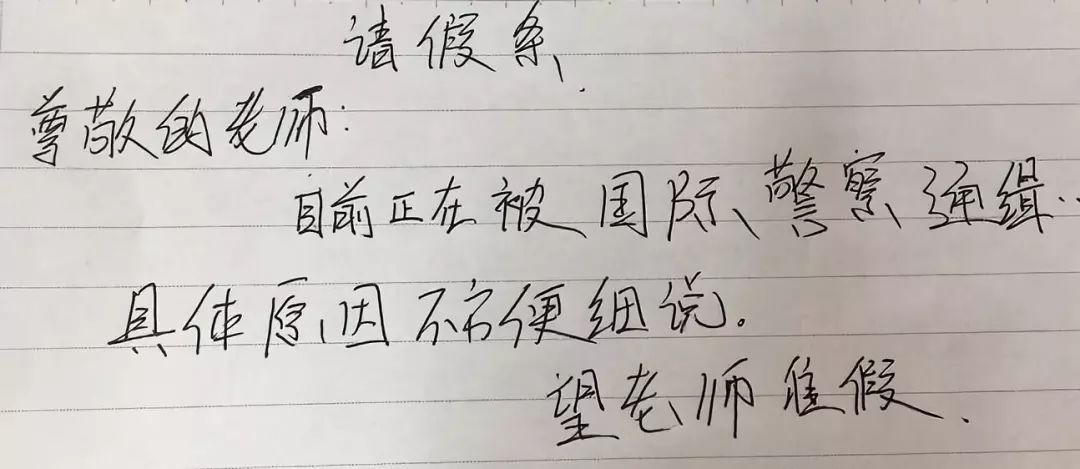 请假条
尊敬的老师:
目前正在被国际警察通缉..
具体原因不方便细说。
望老师准假.